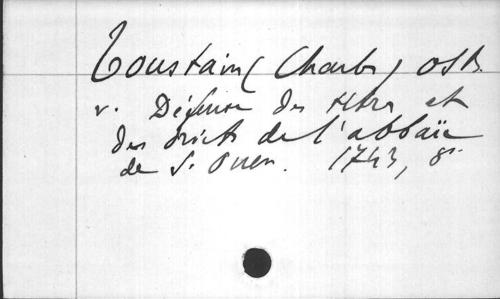 Toustain (Charles) OSB.
v. Défense des titres et
des droits de l'abbaïe
de S. Ouen. 1743, 8°.